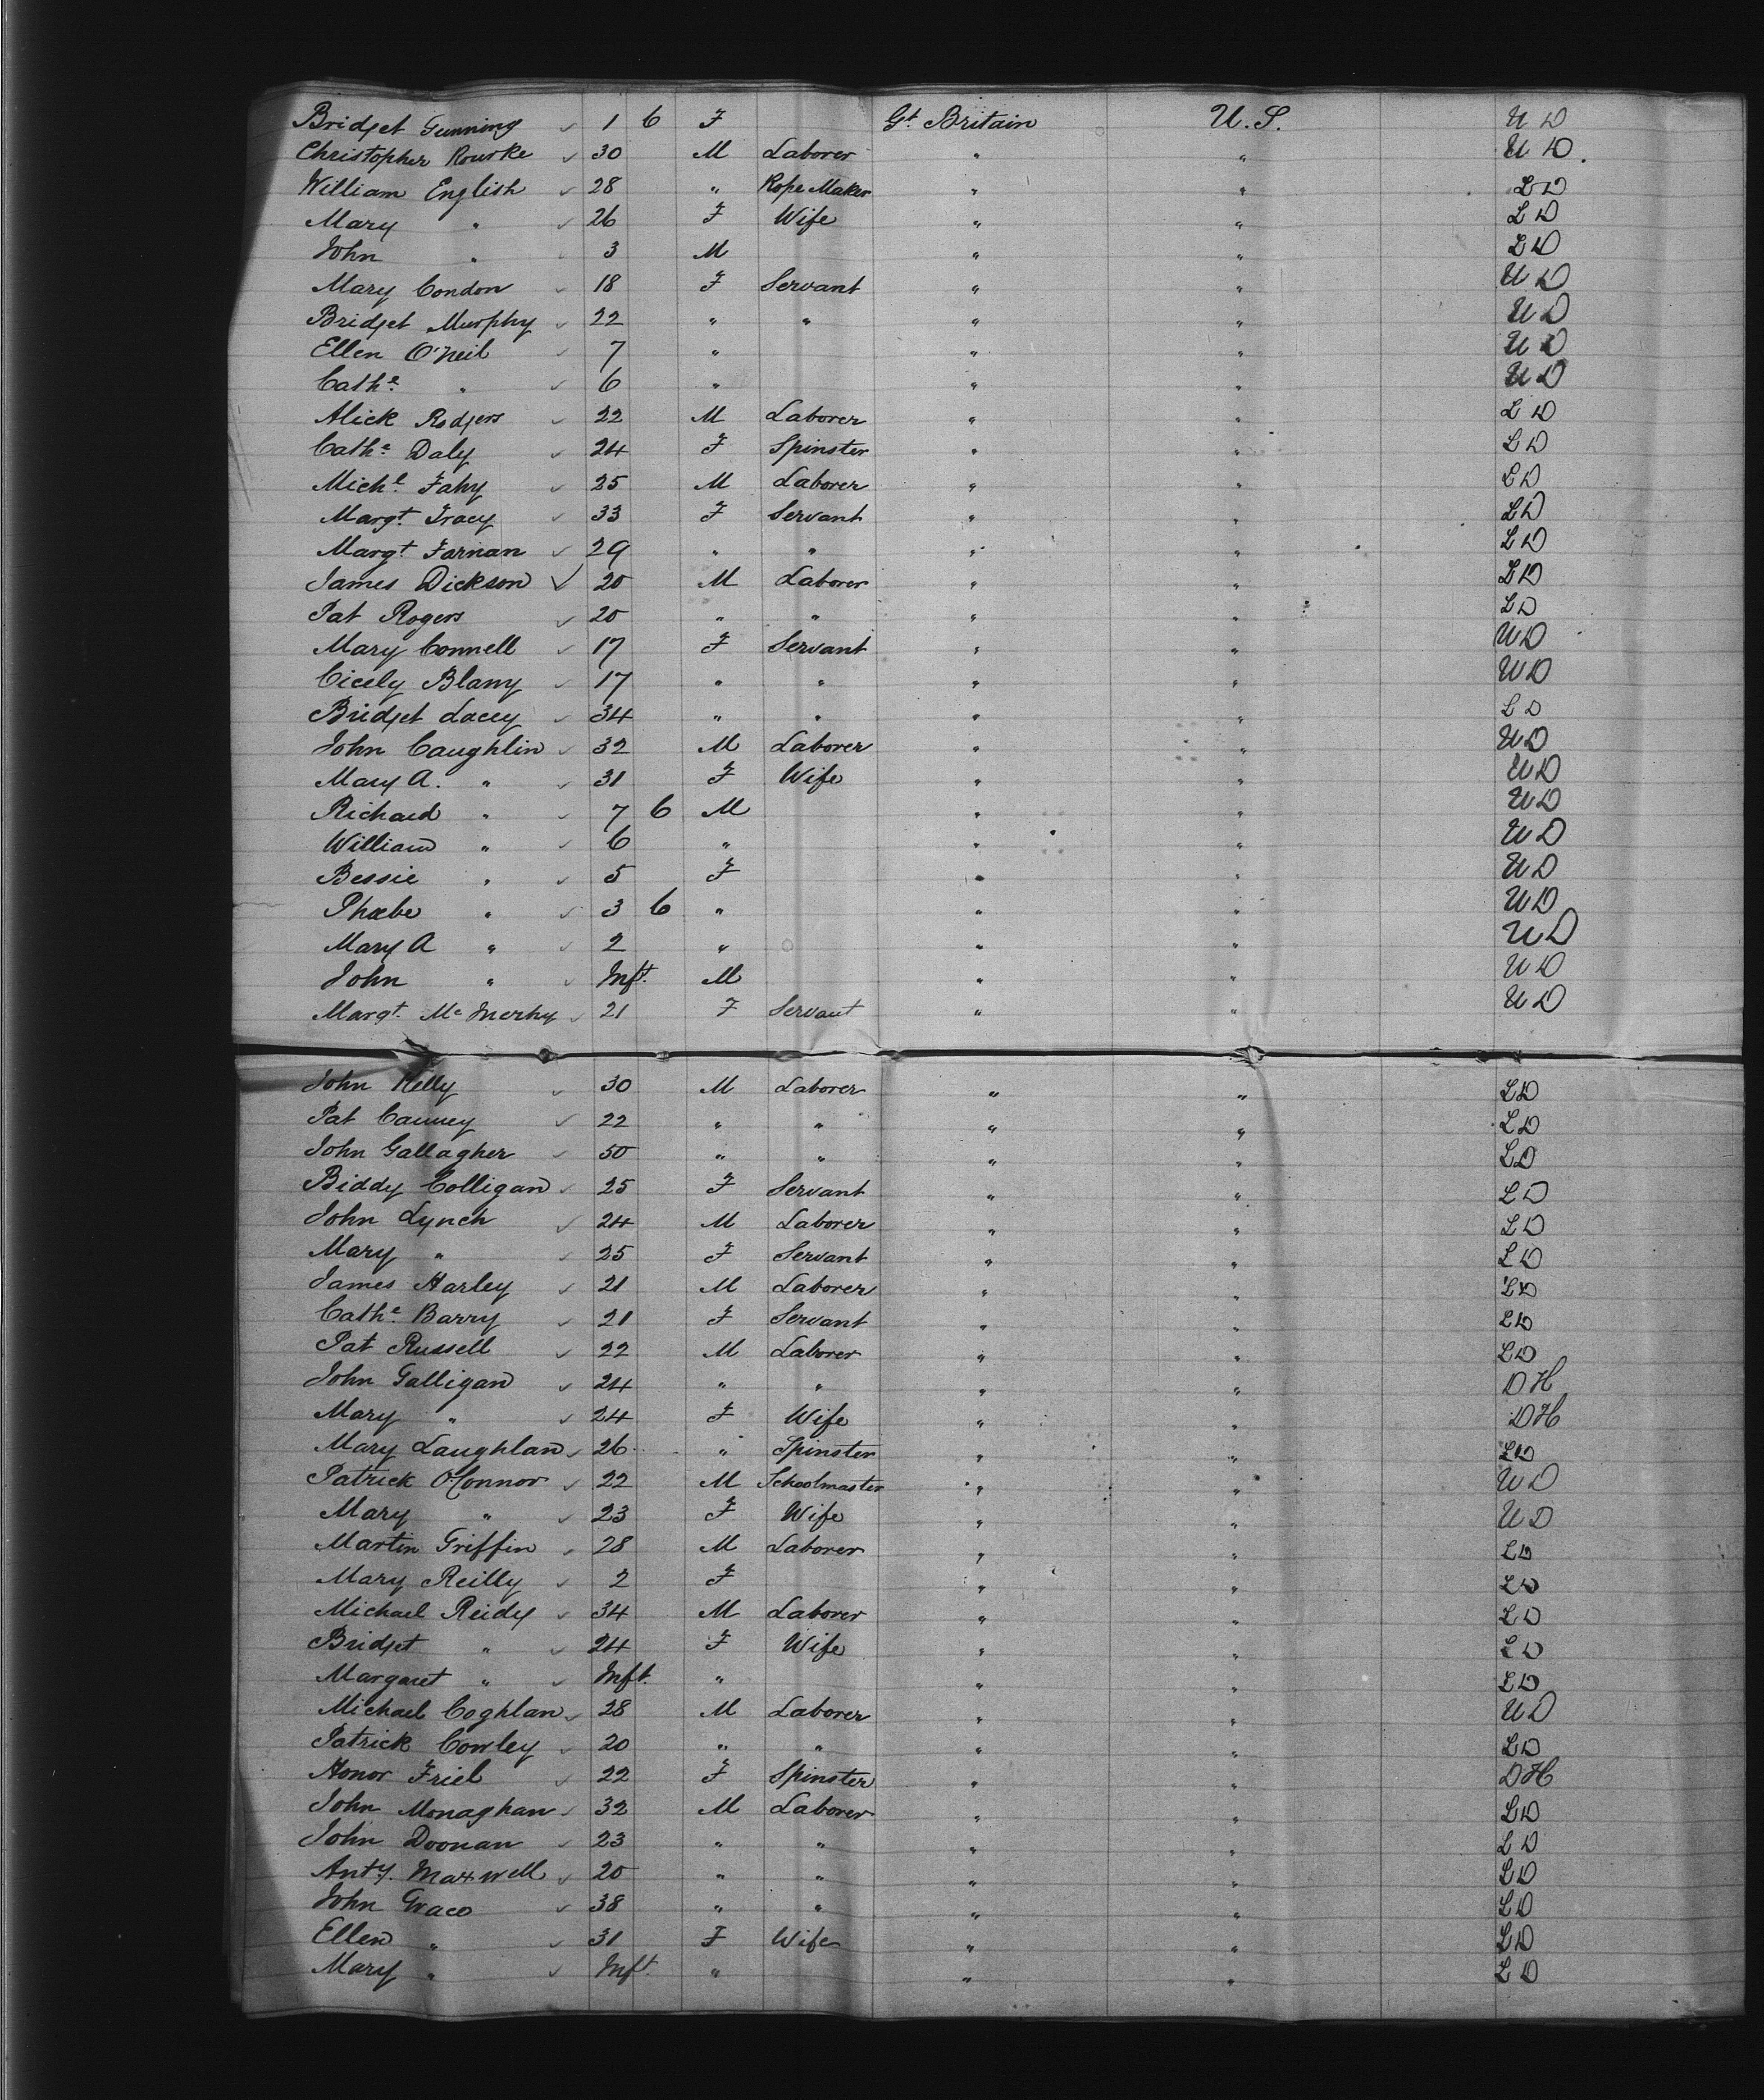 Bridget Gunning 1 6 F Gt. Britain U.S. U D
Christopher Rourke 30 M Laborer " " U D.
William English 28 " Rope Maker " " L D
Mary " 26 F Wife " " L D
John " 3 M " " L D
Mary Condon 18 F Servant " " U D
Bridget Murphy 22 " " " " U D
Ellen O'Neil 7 " " " U D
Cathe. " 6 " " " U D
Alick Rodgers 22 M Laborer " " L D
Cathe. Daly 24 F Spinster " " L D
Michl. Fahy 25 M Laborer " " L D
Margt. Tracy 33 F Servant " " L D
Margt. Farnan 29 " " " " L D
James Dickson 20 M Laborer " " L D
Pat Rogers 20 " " " " L D
Mary Connell 17 F Servant " " U D
Cicely Blany 17 " " " " U D
Bridget Lacey 34 " " " " L D
John Caughlin 32 M Laborer " " U D
Mary A. " 31 F Wife " " U D
Richard " 7 6 M " " U D
William " 6 " " " U D
Bessie " 5 F " " U D
Phœbe " 3 6 " " " U D
Mary A " 2 " " " U D
John " Inft. M " " U D
Margt. Mc 21 F Servant " " U D
John Kelly 30 M Laborer " " L D
Pat Canney 22 " " " " L D
John Gallagher 50 " " " " L D
Biddy Colligan 25 F Servant " " L D
John Lynch 24 M Laborer " " L D
Mary " 25 F Servant " " L D
James Harley 21 M Laborer " " L D
Cathe. Barry 21 F Servant " " L D
Pat Russell 22 M Laborer " " L D
John Galligan 24 " " " " D H
Mary " 24 F Wife " " D H
Mary Laughlan 26 " Spinster " " L D
Patrick O'Connor 22 M Schoolmaster " " U D
Mary " 23 F Wife " " U D
Martin Griffin 28 M Laborer " " L D
Mary Reilly 2 F " " L D
Michael Reidy 34 M Laborer " " L D
Bridget " 24 F Wife " " L D
Margaret " Inft. " " " L D
Michael Coghlan 28 M Laborer " " U D
Patrick Conley 20 " " " " L D
Honor Friel 22 F Spinster " " D H
John Monaghan 32 M Laborer " " L D
John Doonan 23 " " " " L D
Anty. Maxwell 20 " " " " L D
John Grace 38 " " " " L D
Ellen " 31 F Wife " " L D
Mary " Inft. " " " L D